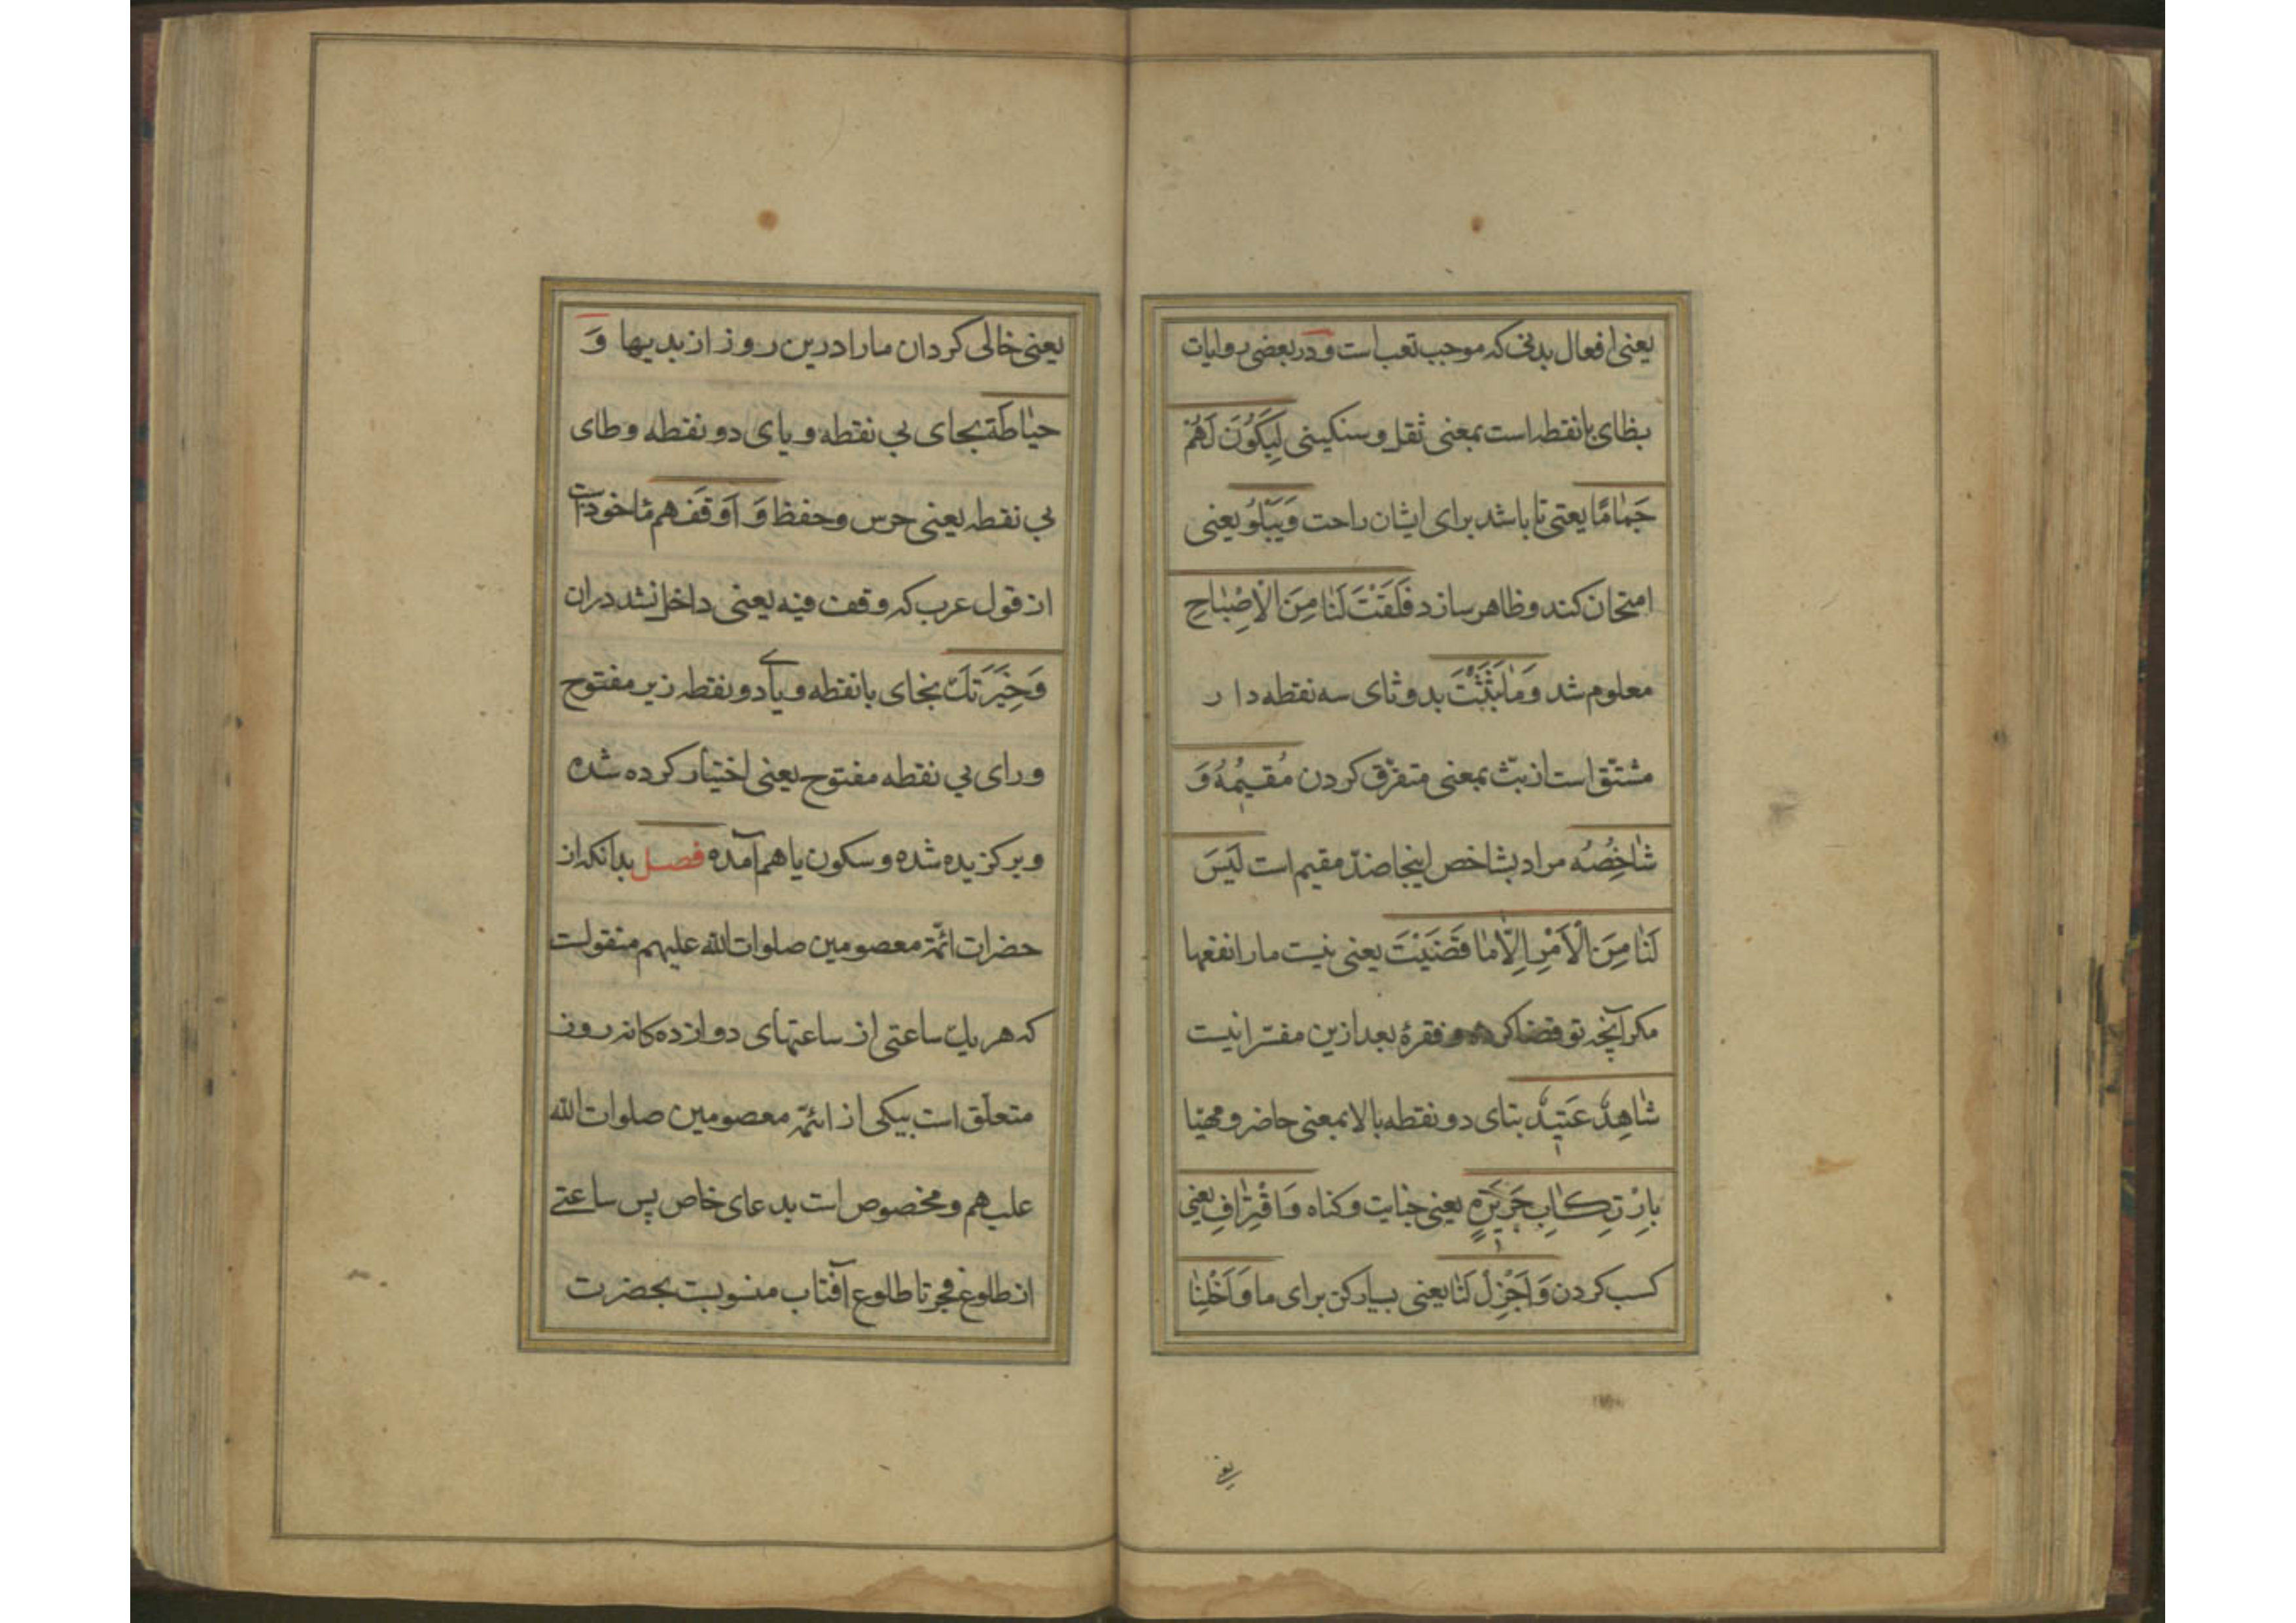 یعنی افعال بدنی که موجب تعب است و در بعضی روایات
بظای بانقطه است بمعنی ثقل و سنکینی لِیَکُونَ لَهُمْ
جَمٰامًا یعنی تا باشد برای ایشان راحت وَیَبْلُوَ یعنی
امتحان کند و ظاهر سازد فَلَقْتَ لَنٰا مِنَ الْاِصْبٰاحِ
معلوم شد وَمٰا بَثَثْتَ بدو ثای سه نقطه دار
مشتق است از بثّ بمعنی متفرّق کردن مُقیمُهُ وَ
شٰاخِصُهُ مراد بشاخص اینجا ضدّ مقیم است لَیْسَ
لَنٰا مِنَ الْاَمْرِ اِلّٰا مٰا قَضَیْتَ یعنی نیست ما را نفعها
مکر آنچه تو قضا کرده و فقرهٔ بعد ازین مفسّر انیست
شٰاهِدٌ عَتیدٌ بتای دو نقطه بالا بمعنی حاضر و مهیّا
بِارْتِکٰابِ جَریرَةٍ یعنی جنایت و کناه وَاقْتِرٰافِ یعنی
کسب کردن وَاَجْزِلْ لَنٰا یعنی بسیار کن برای ما وَاَخْلِنٰا
یعنی خالی کردان ما را درین روز از بدیها وَ
حیٰاطَةً بحای بی نقطه و یای دو نقطه و طای
بی نقطه یعنی حرس و حفظ وَ اَوْقَفَهم ماخوذست
از قول عرب که وقف فیه یعنی داخل نشد دران
وَخِیَرَتِكَ بخای بانقطه و یای دو نقطه زیر مفتوح
و رای بی نقطه مفتوح یعنی اختیار کرده شده
و برکزیده شده و سکون یا هم آمده فصل بدانکه از
حضرات ائمّهٔ معصومین صلوات الله علیهم منقولست
که هر یك ساعتی از ساعتهای دوازده کانه روز
متعلّق است بیکی از ائمّهٔ معصومین صلوات الله
علیهم و مخصوص است بدعای خاص پس ساعتے
از طلوع فجر تا طلوع آفتاب منسوبست بحضرت